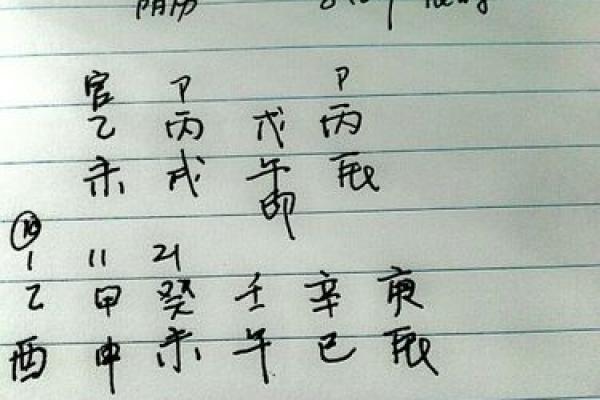 阴历
官 P P
乙 丙 戊 丙
未 戌 午 辰
印
⑩
1 11 21
乙 甲 癸 壬 辛 庚
酉 申 未 午 巳 辰